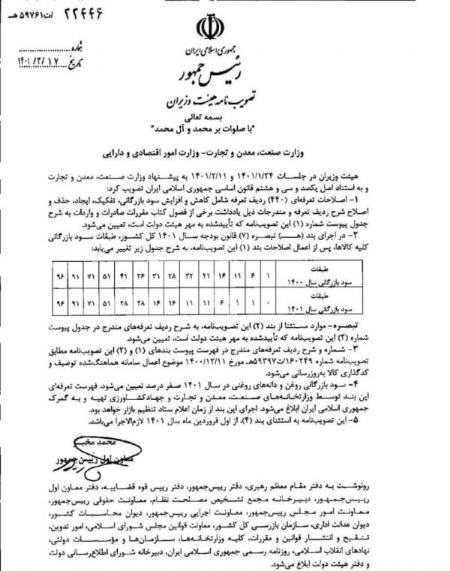 ۲۲۴۴۶ /ت۵۹۷۶۱هـ
جمهوری اسلامی ایران
رئیس جمهور
تصویب نامه هیئت وزیران
شماره
تاریخ ۱۴۰۱/۲/۱۷
بسمه تعالی
"با صلوات بر محمد و آل محمد"
وزارت صنعت، معدن و تجارت- وزارت امور اقتصادی و دارایی
هیئت وزیران در جلسات ۱۴۰۱/۱/۲۴ و ۱۴۰۱/۲/۱۱ به پیشنهاد وزارت صنعت، معدن و تجارت
و به استناد اصل یکصد و سی و هشتم قانون اساسی جمهوری اسلامی ایران تصویب کرد:
۱- اصلاحات تعرفه‌ای (۴۴۰) ردیف تعرفه شامل کاهش و افزایش سود بازرگانی، تفکیک، ایجاد، حذف و
اصلاح شرح ردیف تعرفه و مندرجات ذیل یادداشت برخی از فصول کتاب مقررات صادرات و واردات به شرح
جدول پیوست شماره (۱) این تصویب‌نامه که تأییدشده به مهر هیئت دولت است، تعیین می‌شود.
۲- در اجرای بند (هـ) تبصره (۷) قانون بودجه سال ۱۴۰۱ کل کشور، طبقات سود بازرگانی
کلیه کالاها، پس از اعمال اصلاحات بند (۱) این تصویب‌نامه، به شرح جدول زیر تغییر می‌یابد:
طبقات سود بازرگانی سال ۱۴۰۰ ۱ ۶ ۱۱ ۱۶ ۲۲ ۲۸ ۳۱ ۳۶ ۴۱ ۵۱ ۷۱ ۹۱ ۹۶
طبقات سود بازرگانی سال ۱۴۰۱ ۰ ۱ ۱ ۶ ۱۱ ۱۱ ۱۶ ۱۶ ۲۸ ۲۸ ۵۱ ۷۱ ۹۱ ۹۶
تبصره- موارد مستثنا از بند (۲) این تصویب‌نامه، به شرح ردیف تعرفه‌های مندرج در جدول پیوست
شماره (۲) این تصویب‌نامه که تأییدشده به مهر هیئت دولت است، تعیین می‌شود.
۳- شماره و شرح ردیف تعرفه‌های مندرج در فهرست پیوست بندهای (۱) و (۲) این تصویب‌نامه مطابق
تصویب‌نامه شماره ۱۶۰۲۴۹/ت۵۹۳۹۷هـ مورخ ۱۴۰۰/۱۲/۱۱ موضوع اعمال سامانه هماهنگ‌شده توصیف و
کدگذاری کالا به‌روزرسانی می‌شود.
۴- سود بازرگانی روغن و دانه‌های روغنی در سال ۱۴۰۱ صفر درصد تعیین می‌شود. فهرست تعرفه‌ای
این بند توسط وزارتخانه‌های صنعت، معدن و تجارت و جهادکشاورزی تهیه و به گمرک
جمهوری اسلامی ایران ابلاغ می‌شود. اجرای این بند از زمان اعلام ستاد تنظیم بازار خواهد بود.
۵- این تصویب‌نامه به استثنای بند (۴)، از اول فروردین ماه سال ۱۴۰۱ لازم‌الاجرا می‌باشد.
محمد مخبر
معاون اول رییس‌جمهور
رونوشت به دفتر مقام معظم رهبری، دفتر رییس‌جمهور، دفتر رییس قوه قضاییه، دفتر معاون اول
رییس‌جمهور، دبیرخانه مجمع تشخیص مصلحت نظام، معاونت حقوقی رییس‌جمهور،
معاونت امور مجلس رییس‌جمهور، معاونت اجرایی رییس‌جمهور، دیوان محاسبات کشور،
دیوان عدالت اداری، سازمان بازرسی کل کشور، معاونت قوانین مجلس شورای اسلامی، امور تدوین،
تنقیح و انتشار قوانین و مقررات، کلیه وزارتخانه‌ها، سازمان‌ها و مؤسسات دولتی،
نهادهای انقلاب اسلامی، روزنامه رسمی جمهوری اسلامی ایران، دبیرخانه شورای اطلاع‌رسانی دولت
و دفتر هیئت دولت ابلاغ می‌شود.